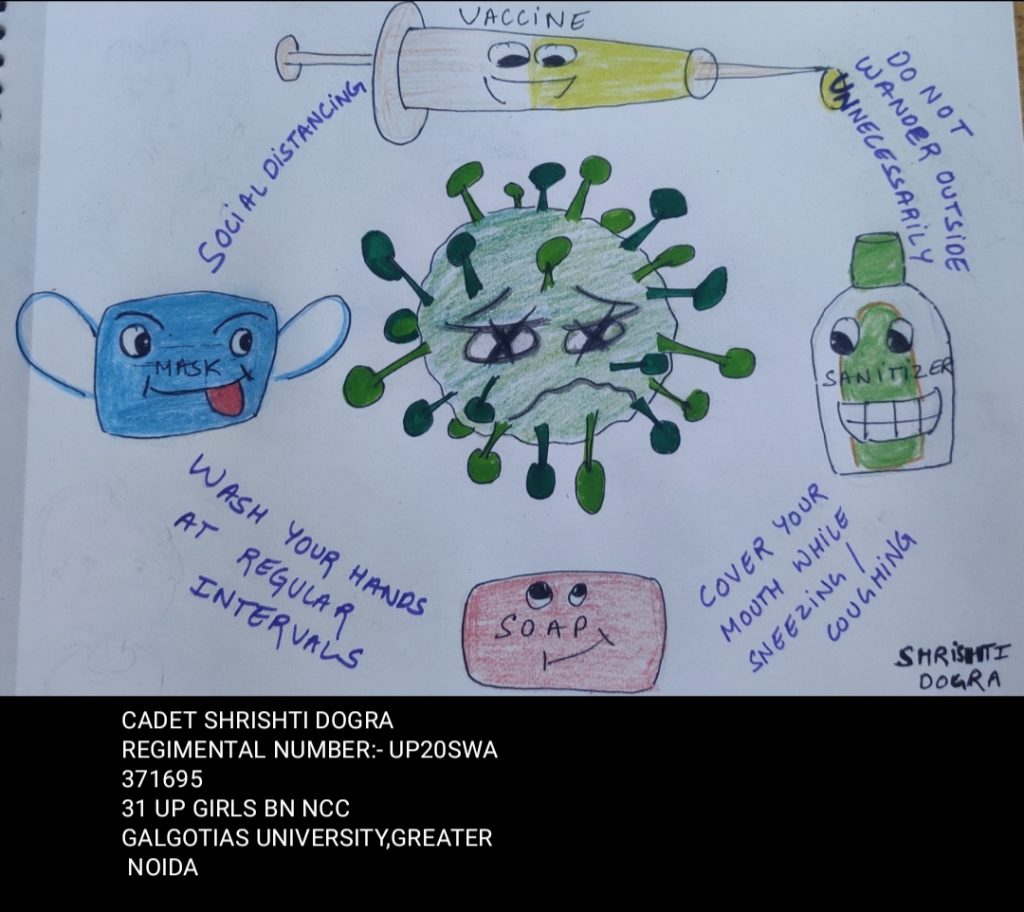 VACCINE
SOCIAL DISTANCING
DO NOT
WANDER OUTSIDE
UNNECESSARILY
MASK
SANITIZER
WASH YOUR HANDS
AT REGULAR
INTERVALS
COVER YOUR
MOUTH WHILE
SNEEZING /
COUGHING
SOAP
SHRISHTI
DOGRA
CADET SHRISHTI DOGRA
REGIMENTAL NUMBER:- UP20SWA
371695
31 UP GIRLS BN NCC
GALGOTIAS UNIVERSITY,GREATER
NOIDA